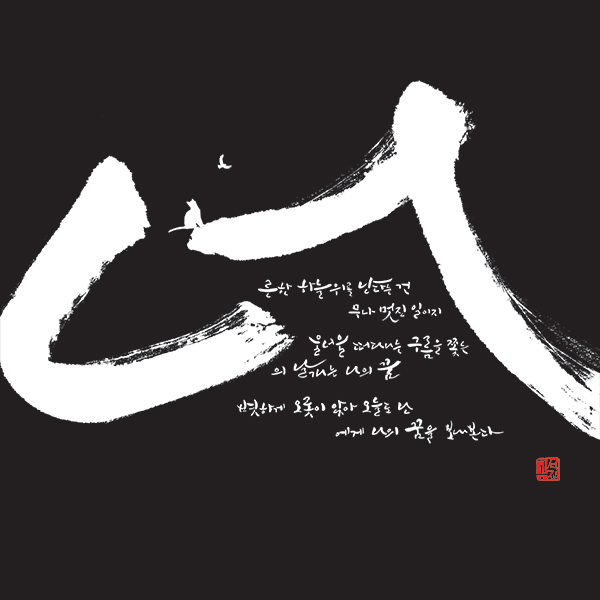 너
른한 하늘 위를 난다는 건
무나 멋진 일이지
울너울 떠다니는 구름을 쫓는
의 날개는 나의 꿈
볏하게 오롯이 앉아 오늘도 난
에게 나의 꿈을 보내본다